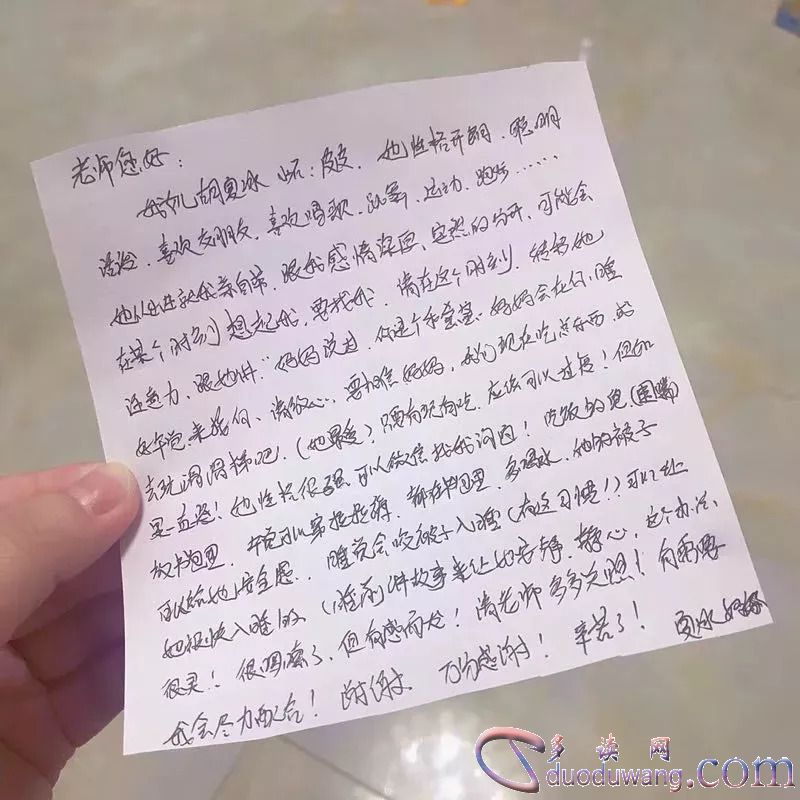 老师您好:
我女儿胡夏冰 小名:皮皮. 她性格开朗. 聪明
活泼. 喜欢交朋友, 喜欢唱歌. 跳舞. 运动. 跑步……,
她从出生就我亲自带. 跟我感情深厚. 突然的分开, 可能会
在某个时刻想起我, 要找我. 请在这个时刻. 转移她
注意力, 跟她讲:"妈妈说过. 你是个乖宝宝. 妈妈会在你睡
好午觉. 来接你、请放心. 要相信妈妈, 我们现在吃点东西. 或
去玩滑滑梯吧. 只要有玩有吃. 应该可以过关! 但如
果 她性格很强. 可以微信找我沟通! 吃饭的兜(围嘴)
放书包里. 书包可以 都在书包里. 多喝水. 她的被子
可以给她安全感. 睡觉会咬被子入睡(有这习惯!)可以让
她很快入睡的 (睡前)讲故事来让她安静. 静心. 这个办法.
很灵! 很 了. 但有感而发! 请老师多多关照! 有需要
我会尽力配合! 谢谢 万分感谢! 辛苦了! 夏冰妈妈
多读网
duoduwang.com